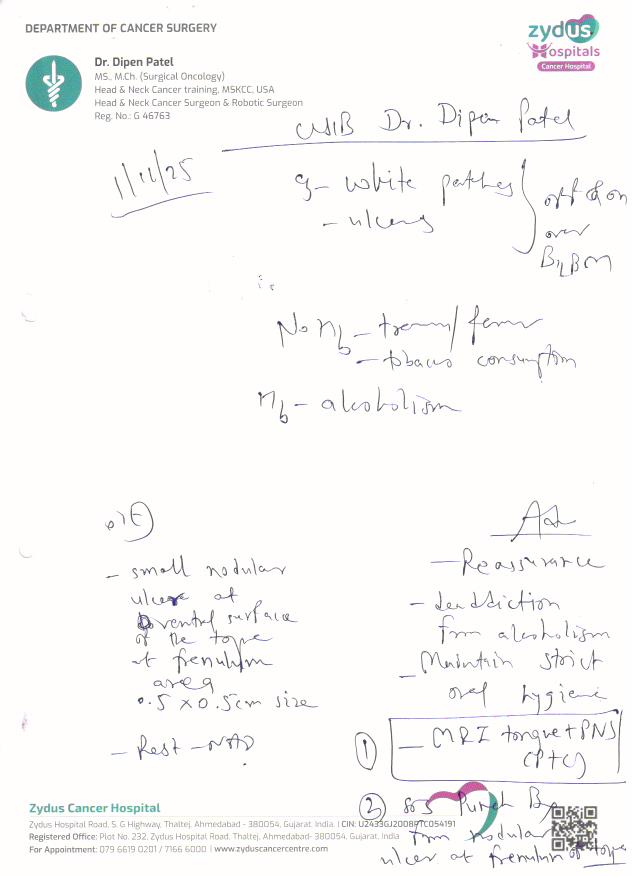 DEPARTMENT OF CANCER SURGERY
zydus
Hospitals
Cancer Hospital
Dr. Dipen Patel
MS., M.Ch. (Surgical Oncology)
Head & Neck Cancer training, MSKCC, USA
Head & Neck Cancer Surgeon & Robotic Surgeon
Reg. No.: G 46763
Dr. Dipen Patel
1/11/25
white patches
- ulcers
off & on
over
B/L BM
No H/o -
- tobacco consumption
H/o - alcoholism
O/E
- small nodular
ulcer at
ventral surface
of the tongue
at frenulum
area
0.5 x 0.5cm size
- Rest - NAD
Adv
- Reassurance
- Deaddiction
from alcoholism
- Maintain strict
oral hygiene
① - MRI tongue + PNS
(P+C)
② SOS Punch Bx
from nodular
ulcer at frenulum of tongue
Zydus Cancer Hospital
Zydus Hospital Road, S. G Highway, Thaltej, Ahmedabad - 380054, Gujarat, India. | CIN: U2433GJ2008PTC054191
Registered Office: Plot No. 232, Zydus Hospital Road, Thaltej, Ahmedabad- 380054, Gujarat, India
For Appointment: 079 6619 0201 / 7166 6000 | www.zyduscancercentre.com